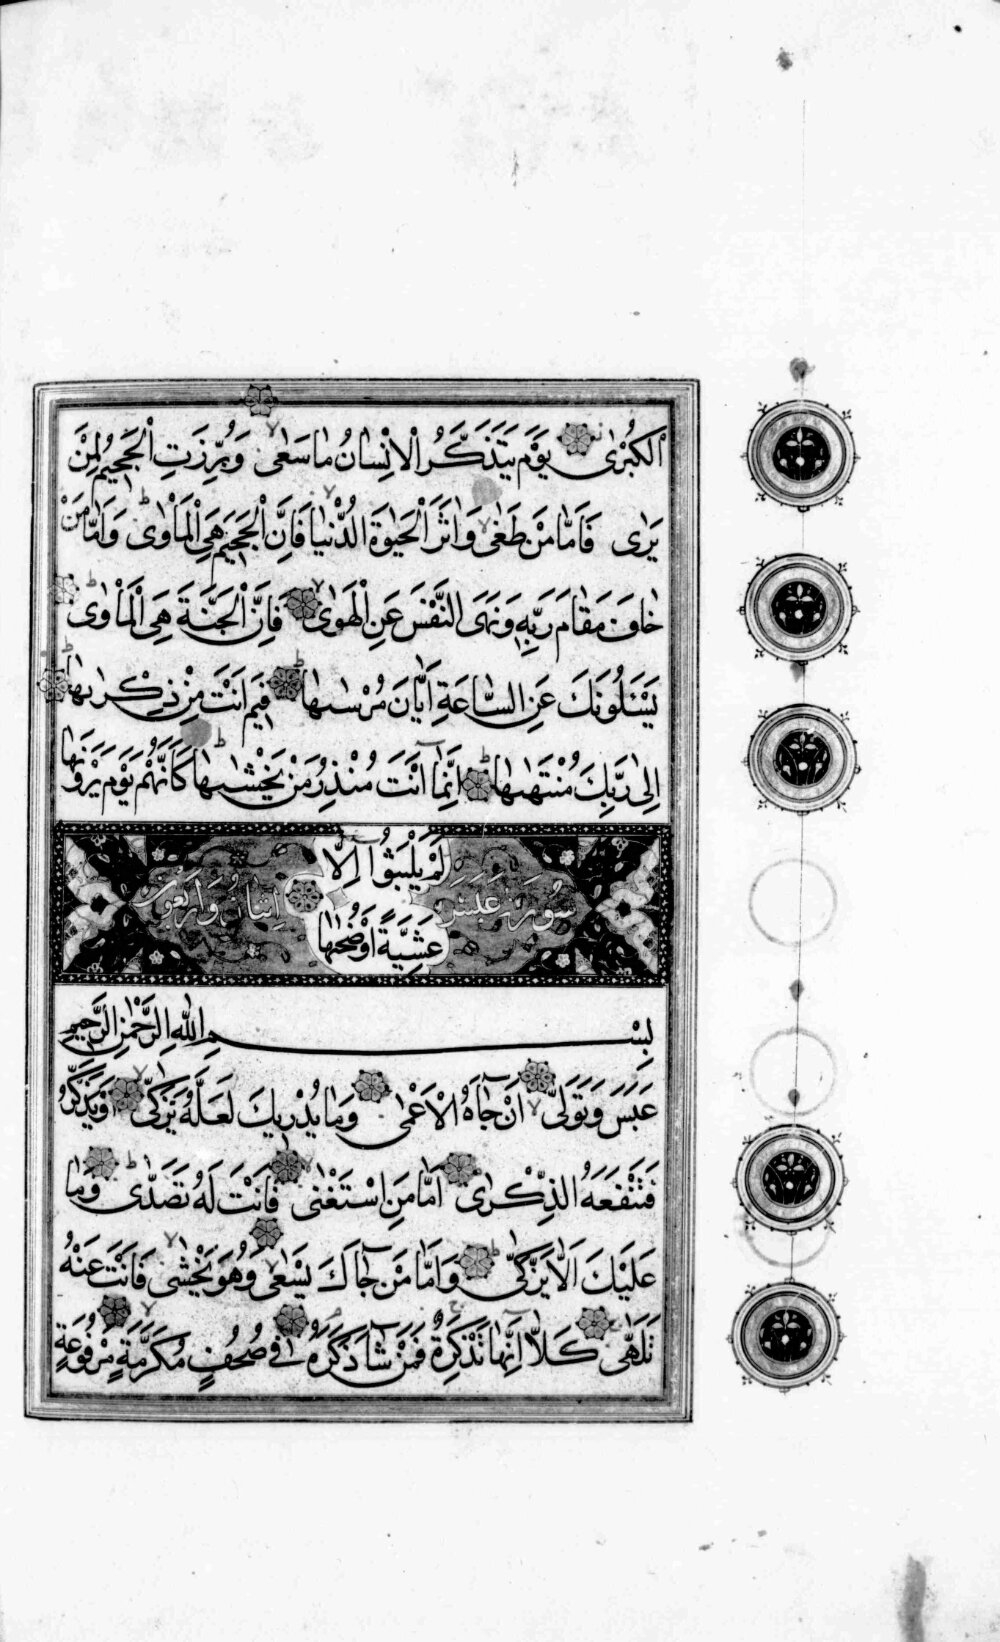 الْكُبْرٰى يَوْمَ يَتَذَكَّرُ الْاِنْسَانُ مَا سَعٰى وَبُرِّزَتِ الْجَحِيمُ لِمَنْ
يَرٰى فَاَمَّا مَنْ طَغٰى وَاٰثَرَ الْحَيٰوةَ الدُّنْيَا فَاِنَّ الْجَحِيمَ هِيَ الْمَاْوٰى وَاَمَّا مَنْ
خَافَ مَقَامَ رَبِّهٖ وَنَهَى النَّفْسَ عَنِ الْهَوٰى فَاِنَّ الْجَنَّةَ هِيَ الْمَاْوٰى
يَسْـَٔلُونَكَ عَنِ السَّاعَةِ اَيَّانَ مُرْسٰىهَا فِيمَ اَنْتَ مِنْ ذِكْرٰىهَا
اِلٰى رَبِّكَ مُنْتَهٰىهَا اِنَّمَا اَنْتَ مُنْذِرُ مَنْ يَخْشٰىهَا كَاَنَّهُمْ يَوْمَ يَرَوْنَهَا
لَمْ يَلْبَثُوا اِلَّا
سورة عبس اثنان واربعون
عَشِيَّةً اَوْ ضُحٰىهَا
بِسْمِ اللّٰهِ الرَّحْمٰنِ الرَّحِيمِ
عَبَسَ وَتَوَلّٰى اَنْ جَاۤءَهُ الْاَعْمٰى وَمَا يُدْرِيكَ لَعَلَّهُ يَزَّكّٰى اَوْ يَذَّكَّرُ
فَتَنْفَعَهُ الذِّكْرٰى اَمَّا مَنِ اسْتَغْنٰى فَاَنْتَ لَهُ تَصَدّٰى وَمَا
عَلَيْكَ اَلَّا يَزَّكّٰى وَاَمَّا مَنْ جَاۤءَكَ يَسْعٰى وَهُوَ يَخْشٰى فَاَنْتَ عَنْهُ
تَلَهّٰى كَلَّا اِنَّهَا تَذْكِرَةٌ فَمَنْ شَاۤءَ ذَكَرَهُ فِي صُحُفٍ مُكَرَّمَةٍ مَرْفُوعَةٍ